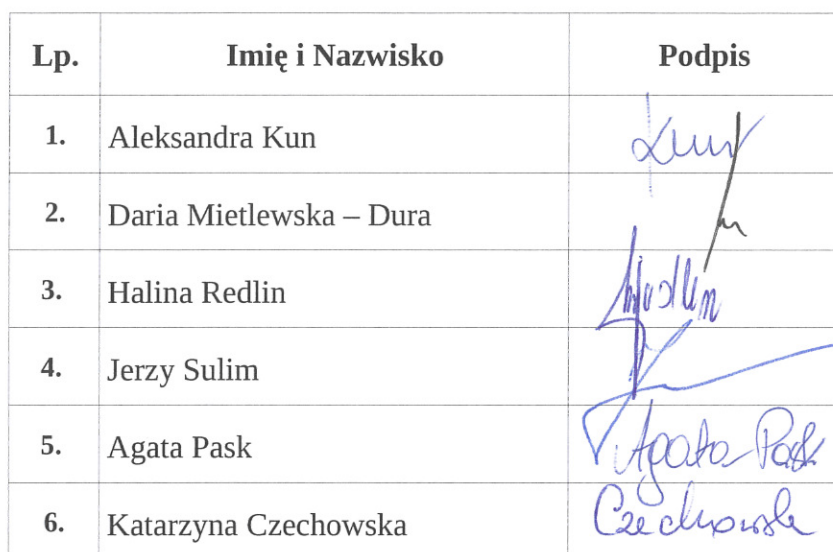 Lp. Imię i Nazwisko Podpis
1. Aleksandra Kun Kun
2. Daria Mietlewska – Dura
3. Halina Redlin
4. Jerzy Sulim
5. Agata Pask Agata Pask
6. Katarzyna Czechowska Czechowska